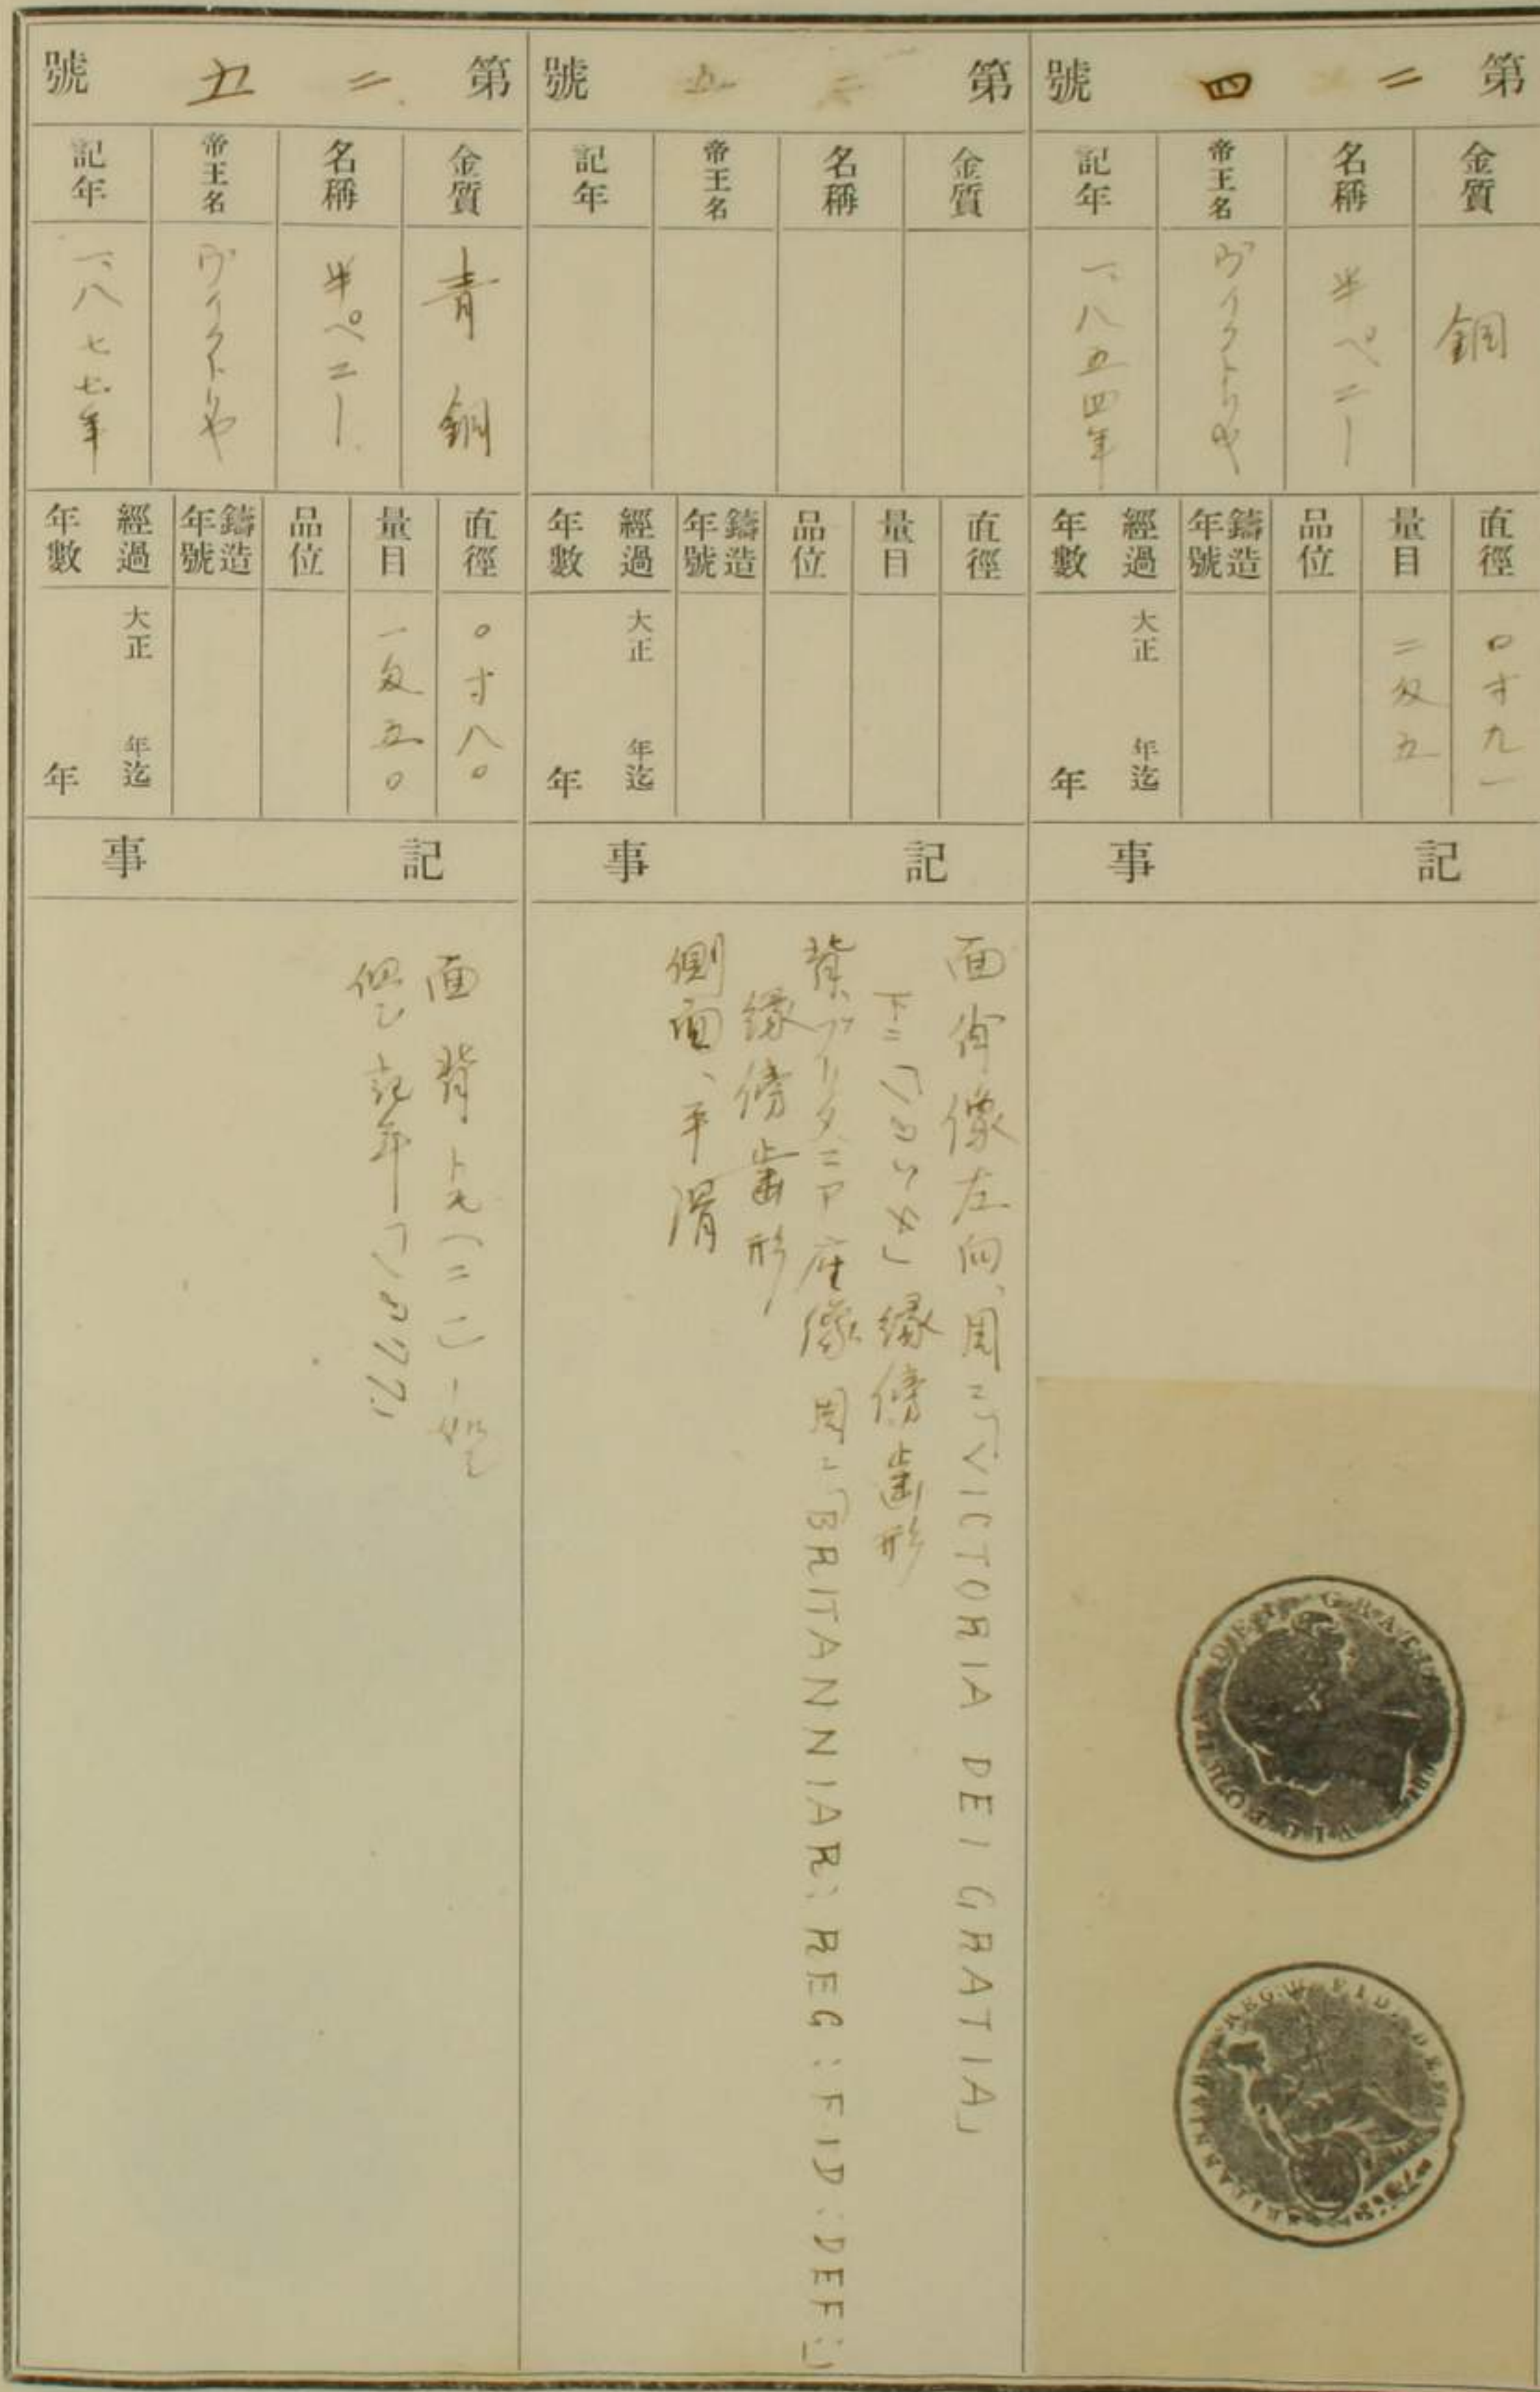 第二四號
金質
名稱
帝王名
記年
銅
半ペニー
ヴィクトリヤ
一、八五四年
直徑
量目
品位
鑄造年號
經過年數
〇寸九一
二匁五
大正 年迄
年
記事
VICTORIA DEI GRATIA
BRITANNIAR: REG: FID: DEF:
第 號
金質
名稱
帝王名
記年
直徑
量目
品位
鑄造年號
經過年數
大正 年迄
年
記事
面 肖像左向、周ニ「VICTORIA DEI GRATIA」
下ニ「1854」縁傍歯形
背、ブリタニア座像 周ニ「BRITANNIAR: REG: FID: DEF:」
縁傍歯形
側面、平滑
第二五號
金質
名稱
帝王名
記年
青銅
半ペニー
ヴィクトリヤ
一、八七七年
直徑
量目
品位
鑄造年號
經過年數
〇寸八〇
一匁五〇
大正 年迄
年
記事
面背トモ(二二)ノ如シ
但シ記年「1877」